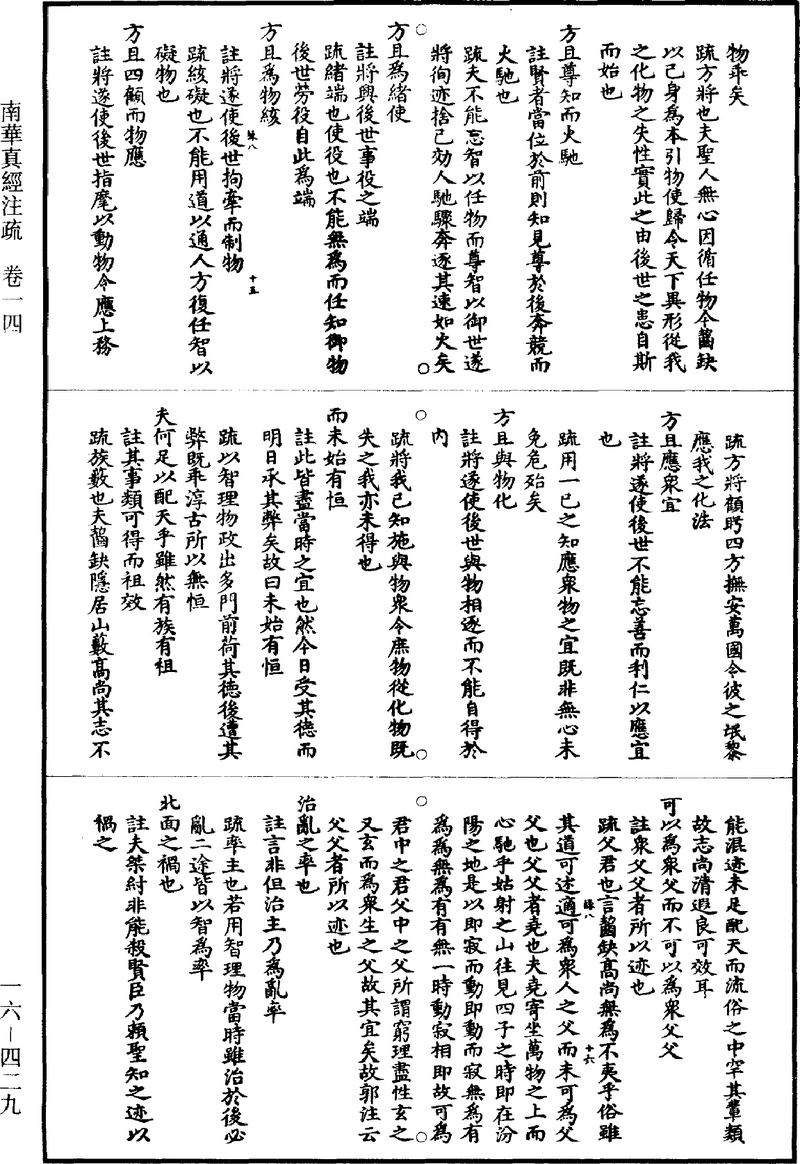 南華真經注疏　卷一四
一六－四二九
物乖矣
疏方將也夫聖人無心因循任物今齧缺
以己身爲本引物使歸令天下異形從我
之化物之失性實此之由後世之患自斯
而始也
方且尊知而火馳
註賢者當位於前則知見尊於後奔競而
火馳也
疏夫不能忘智以任物而尊智以御世遂
將徇迹捨己効人馳驟奔逐其速如火矣
方且爲緒使
註將興後世事役之端
疏緒端也使役也不能無爲而任知御物
後世勞役自此爲端
方且爲物絯
註將遂使後世拘牽而制物
疏絯礙也不能用道以通人方復任智以
礙物也
方且四顧而物應
註將遂使後世指麾以動物令應上務
疏方將顧眄四方撫安萬國令彼之氓黎
應我之化法
方且應衆宜
註將遂使後世不能忘善而利仁以應宜
也
疏用一己之知應衆物之宜既非無心未
免危殆矣
方且與物化
註將遂使後世與物相逐而不能自得於
內
疏將我已知施與物衆令庶物從化物既
失之我亦未得也
而未始有恒
註此皆盡當時之宜也然今日受其德而
明日承其弊矣故曰未始有恒
疏以智理物政出多門前荷其德後遭其
弊既乖淳古所以無恒
夫何足以配天乎雖然有族有祖
註其事類可得而祖效
疏族藪也夫齧缺隱居山藪高尚其志不
能混迹未足配天而流俗之中罕其輩類
故志尚清遐良可效耳
可以爲衆父而不可以爲衆父父
註衆父父者所以迹也
疏父君也言齧缺高尚無爲不夷乎俗雖
其道可述適可爲衆人之父而未可爲父
父也父父者堯也夫堯寄坐萬物之上而
心馳乎姑射之山往見四子之時即在汾
陽之地是以即寂而動即動而寂無爲有
爲爲無爲有有無一時動寂相即故可爲
君中之君父中之父所謂窮理盡性玄之
又玄而爲衆生之父故其宜矣故郭注云
父父者所以迹也
治亂之率也
註言非但治主乃爲亂率
疏率主也若用智理物當時雖治於後必
亂二途皆以智爲率
北面之禍也
註夫桀紂非能殺賢臣乃賴聖知之迹以
禍之